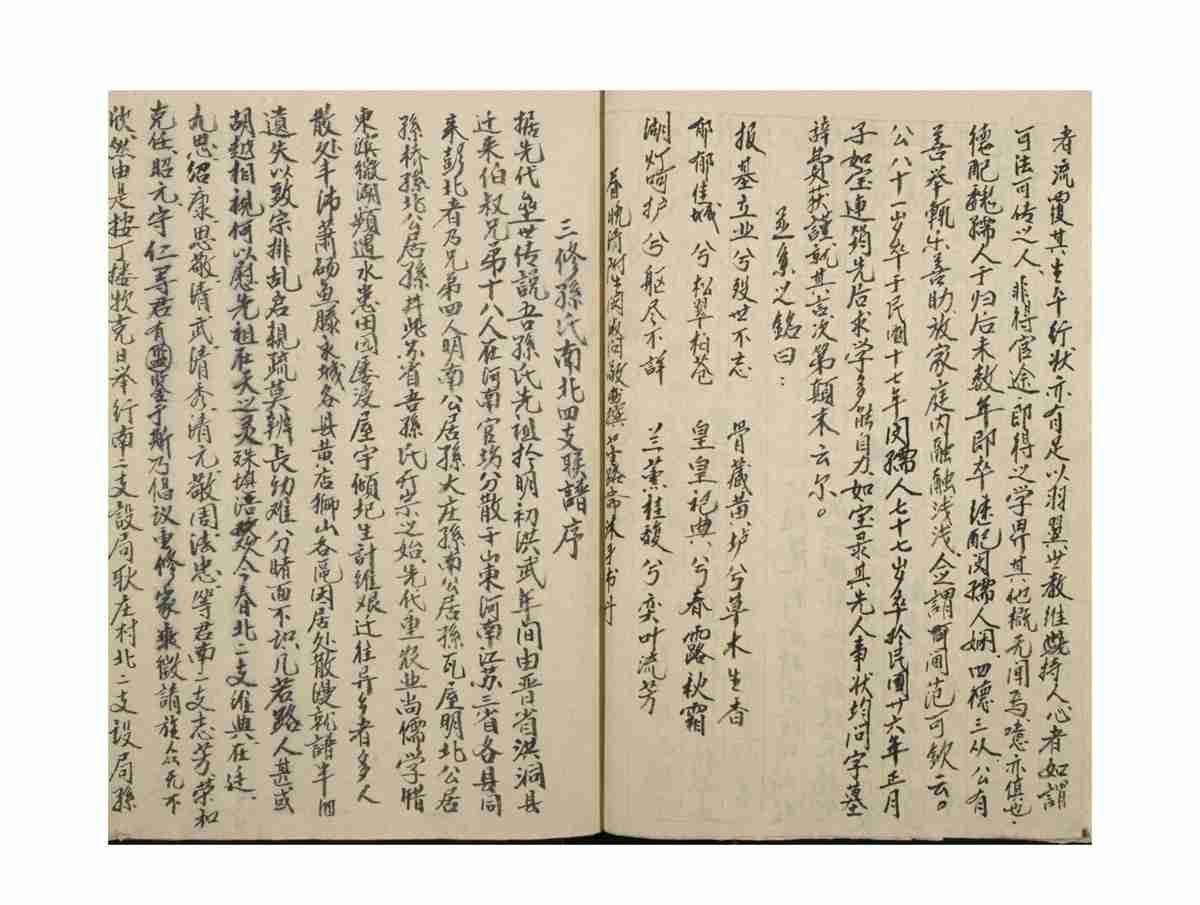 者流覆其生平行状亦有足以羽翼世教维持人心者如谓
可法可传之人非得官途即得之学界其他概无闻焉噫亦慎也.
德配魏孺人于归后未数年即卒继配闵孺人娴四德三从公有
善举輒乐善助故家庭内融融浅浅金谓可间范可钦云。
公八十一岁卒于民国十七年闵孺人七十七岁卒於民国廿六年正月
子如宝连筠先后求学多能自力如宝录其先人事状均问字墓
辞费获謹就其言次第颠末云尔。
并系之銘曰：
报基立业兮殁世不忘 骨藏黄垆兮草木生香
郁郁佳城兮松翠柏苍 皇皇祀典兮春露秋霜
湖灯呵护兮驱尽不祥 兰薰桂馥兮奕叶流芳
春晚清附生闵
三修孫氏南北四支联譜序
据先代垒世传説吾孫氏先祖於明初洪武年间由晋省洪洞县
迁来伯叔兄弟十八人在河南官坊分散于山东河南江苏三省各县同
来彭北者乃兄弟四人明南公居孫大庄孫南公居孫瓦屋明北公居
孫桥孫北公居孫井此苏省吾孫氏疗宗之始先代重农业尚儒学惜
東滨微湖頻遭水患田园屡没屋宇傾圮生計維艰迁往异乡者多人
散处丰沛萧砀鱼滕永城各县黄店獅山各邑因居处散漫就譜牛涸
遺失以致宗排乱启親疏莫辨长幼难分睹面不识几若路人甚或
胡越相视何以慰先祖在天之灵殊堪浩歎今春北二支维典在廷.
九思绍康思敬清武清秀清元敬周法忠等君南二支志芳荣和
克任昭元守仁等君有鉴于斯乃倡议重修家乘徵請族众无不
欣然由是按丁楼牧克日举行南二支設局耿庄村北二支設局孫